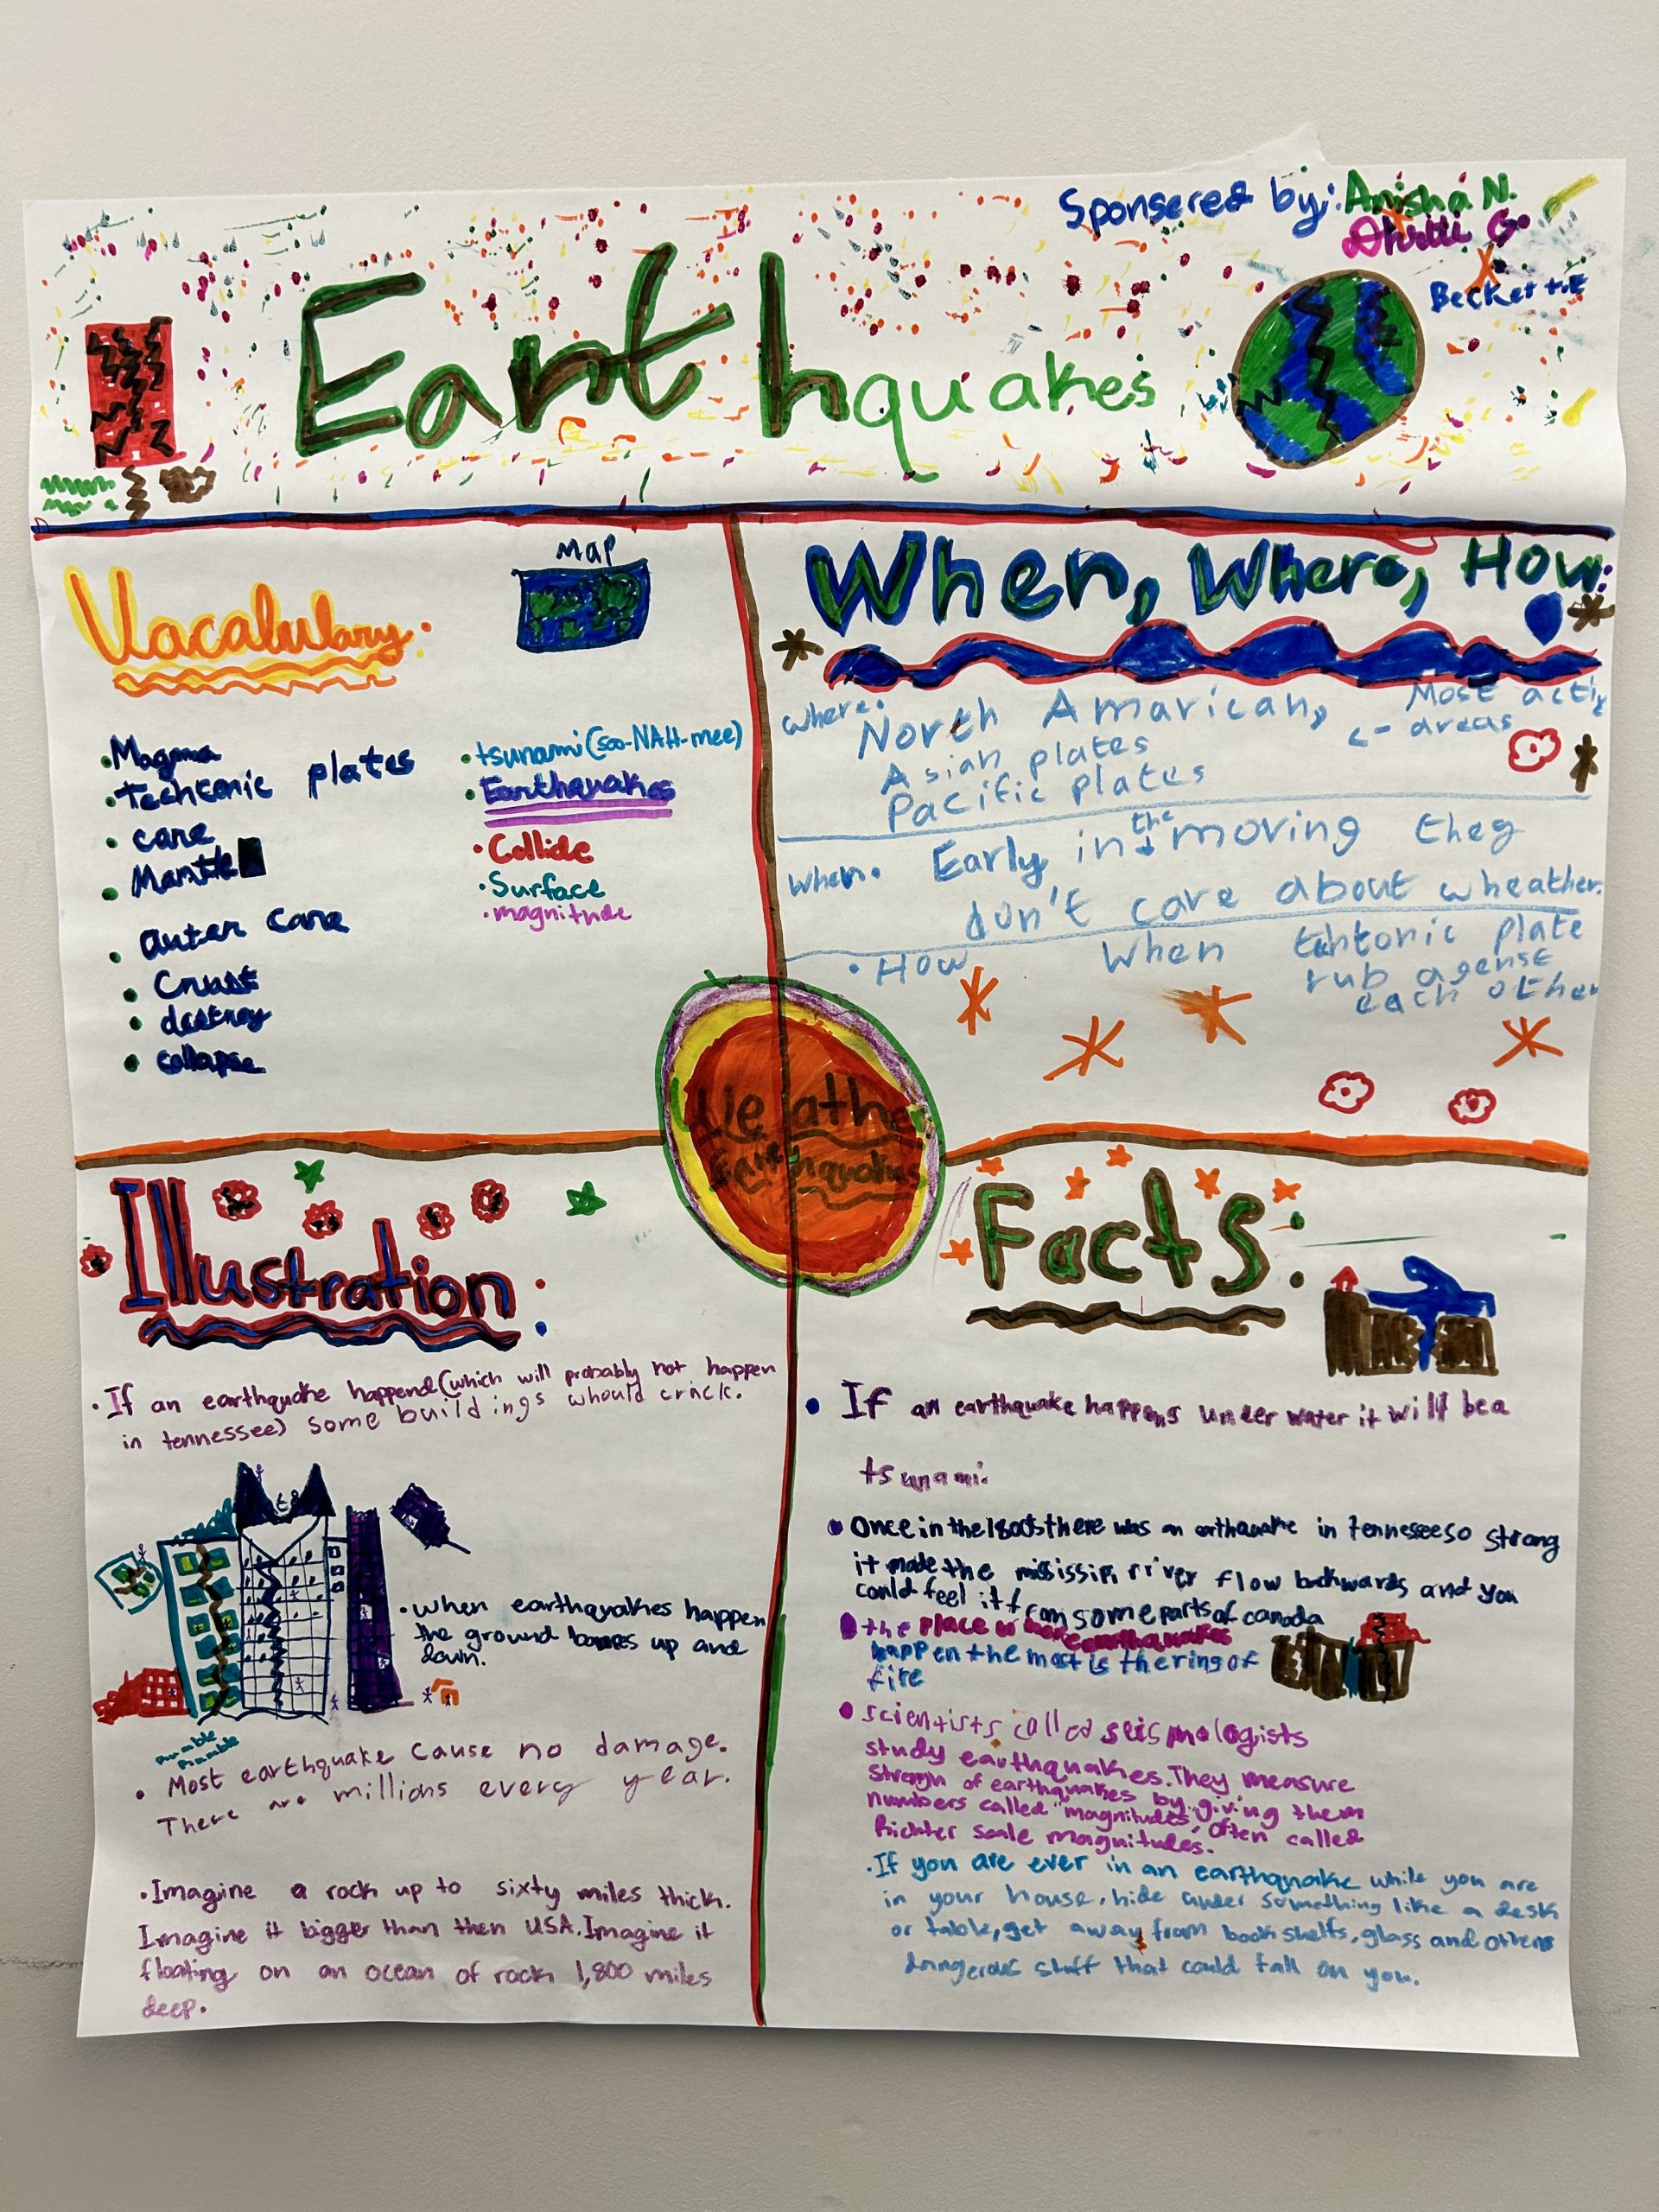 Sponsered by: Anisha N.
G.
Beckett E
Earthquakes
Vacabulary:
Map
• Magma
• Techtonic plates
• core
• Mantle
• outer core
• Crust
• destroy
• collapse
• tsunami (soo-NAH-mee)
• Earthquakes
• Collide
• Surface
• magnitude
When, Where, How:
where: North Amarican,
Asian plates
Pacific plates
Most activ
<- areas
when. Early in the moving they
don't care about wheather.
• How When tehtonic plate
rub agenst
each other
Weather
Earthquakes
Illustration:
• If an earthquake happend (which will probably not happen
in tennessee) some buildings whould crack.
• when earthquakes happen
the ground bounces up and
down.
rumble
rumble
• Most earthquake cause no damage.
There are millions every year.
• Imagine a rock up to sixty miles thick.
Imagine it bigger than then USA. Imagine it
floating on an ocean of rock 1,800 miles
deep.
Facts:
• If an earthquake happens under water it will be a
tsunami.
• Once in the 1800s there was an earthquake in tennessee so strong
it made the mississipi river flow backwards and you
could feel it from some parts of canada
• the place where earthquakes
happen the most is the ring of
fire
• scientists called seismologists
study earthquakes. They measure
strength of earthquakes by giving them
numbers called "magnitudes," Often called
Richter scale magnitudes.
• If you are ever in an earthquake while you are
in your house, hide under something like a desk
or table, get away from book shelfs, glass and others
dangerous stuff that could fall on you.